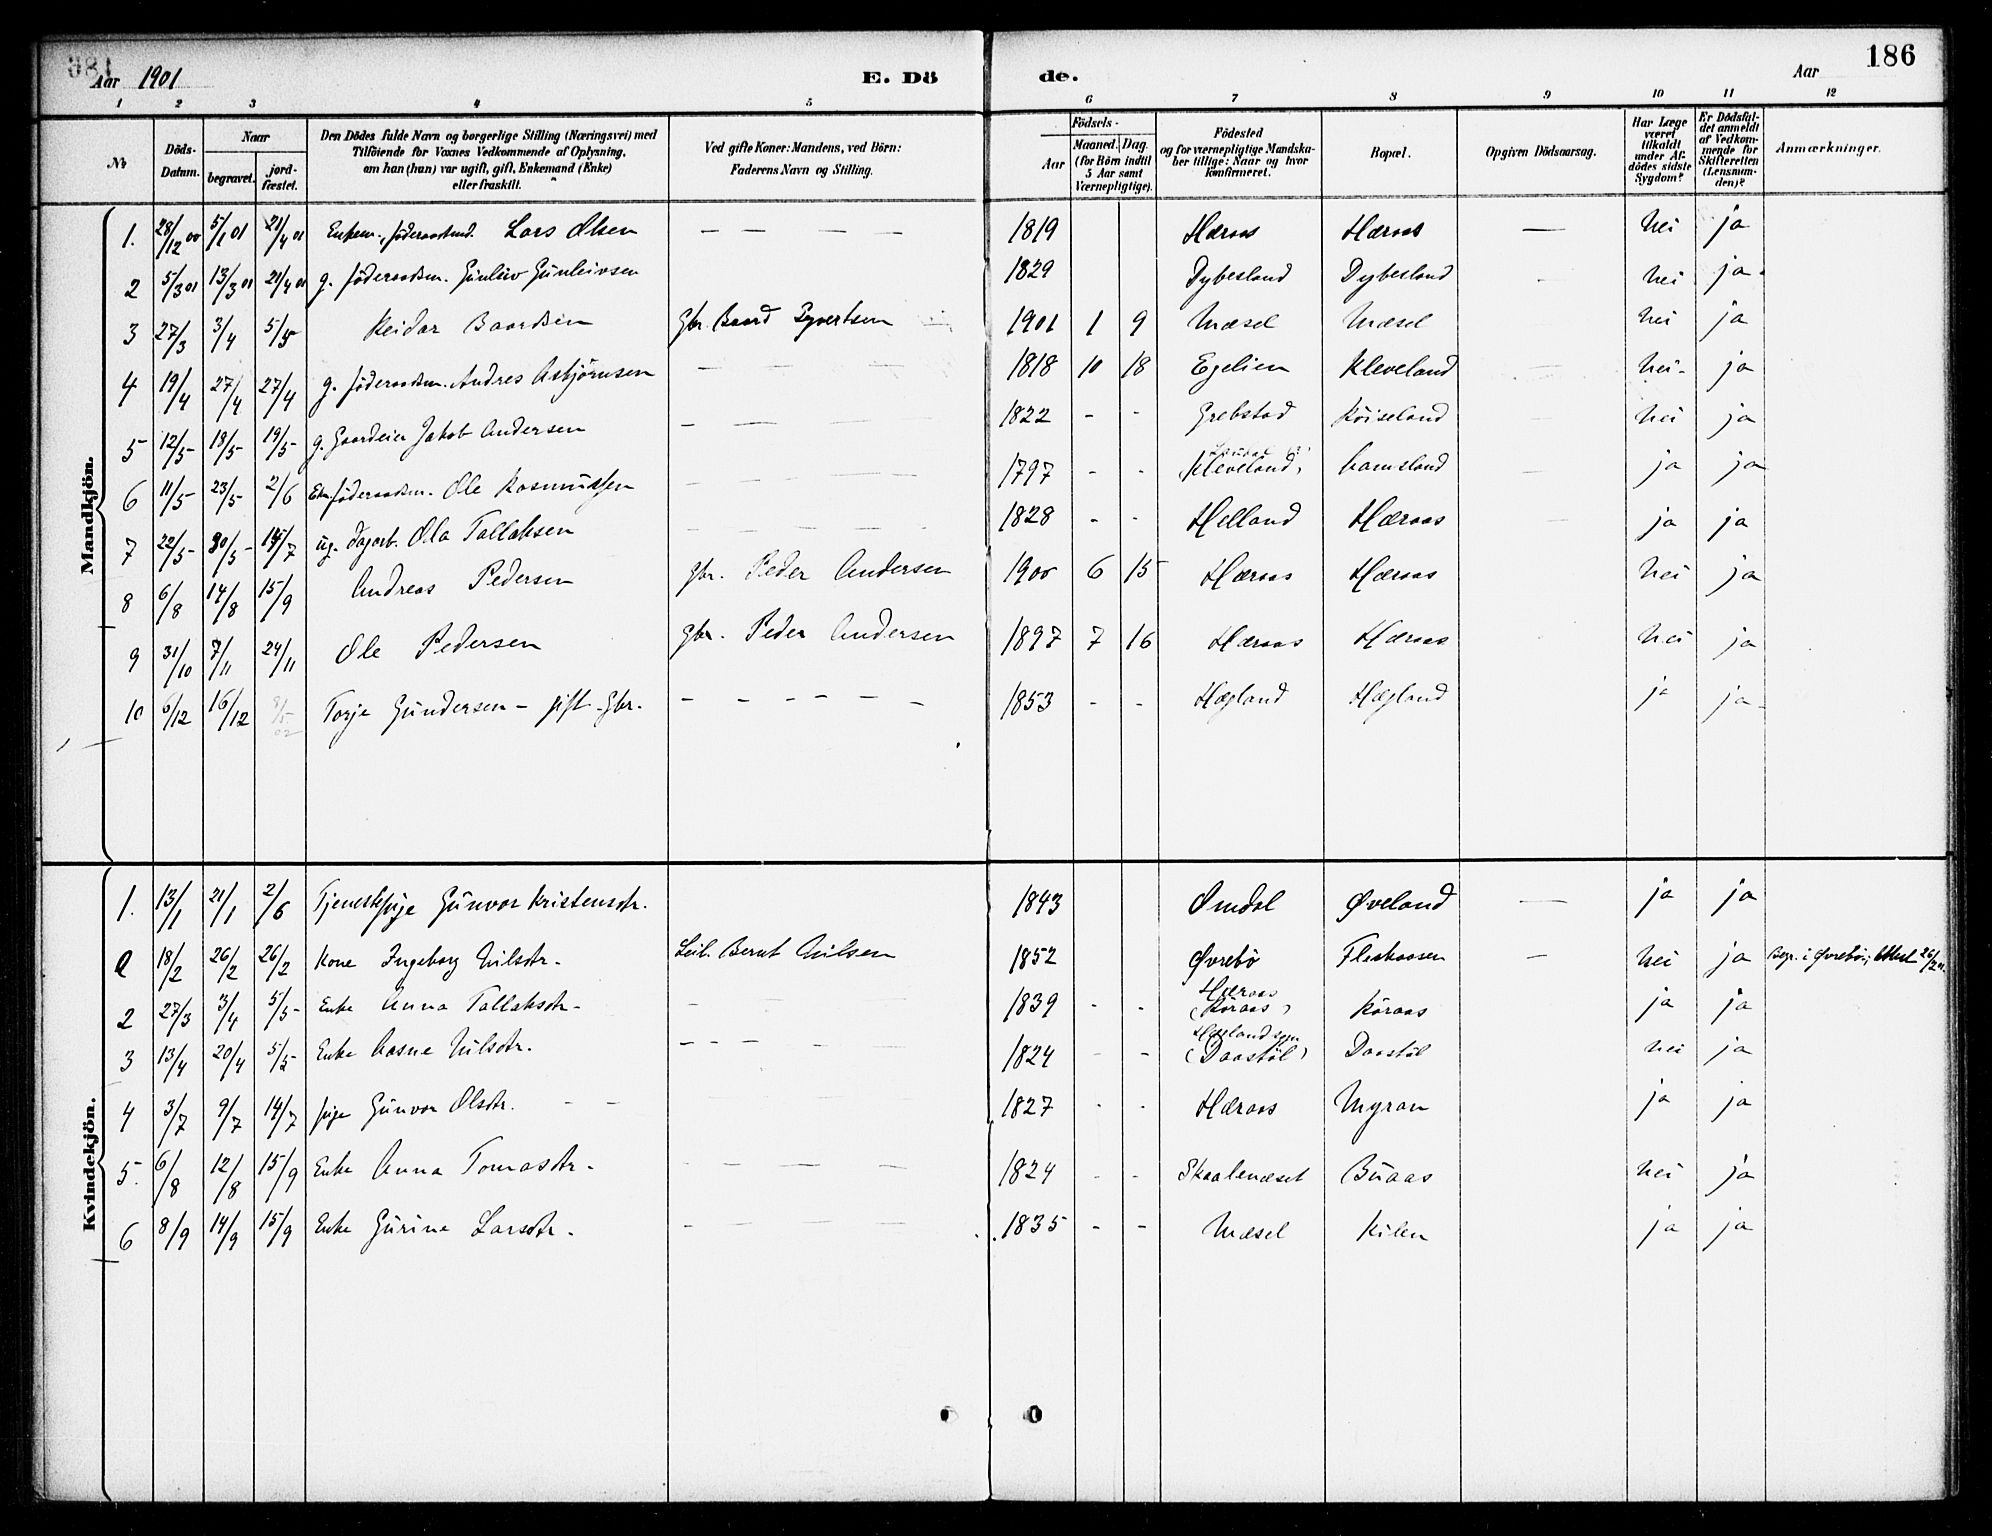 Aar 1901 E. Dö de. Aar 186
1 2 3 4 5 6 7 8 9 10 11 12
No
Döds-Datum.
Naar
begravet.
jord-fæstet.
Den Dödes fulde Navn og borgerlige Stilling (Næringsvei) med
Tilföiende for Voxnes Vedkommende af Oplysning,
om han (hun) var ugift, gift, Enkemand (Enke)
eller fraskilt.
Ved gifte Koner: Mandens, ved Börn:
Faderens Navn og Stilling.
Födsels-
Aar
Maaned. Dag.
(for Börn indtil
5 Aar samt
Værnepligtige).
Födested
og for værnepligtige Mandska-
ber tillige: Naar og hvor
konfirmeret.
Bopæl.
Opgiven Dödsaarsag.
Har Læge
været
tilkaldt
under Af-
dödes sidste
Sygdom?
Er Dödsfal-
det anmeldt
af Vedkom-
mende for
Skifteretten
(Lensman-
den)?
Anmærkninger.
Mandkjön.
1. 28/12 00 5/1 01 21/4 01 Enkem. föderaadsmd. Lars Olsen — — — — 1819 Hæraas Hæraas — nei ja
2 5/3 01 13/3 01 21/4 01 g. föderaadsm. Gunleiv Gunleivsen 1829 Dybesland Dybesland nei ja
3 27/3 3/4 5/5 Reidar Baardsen Gbr. Baard Syvertsen 1901 1 9 Mæsel Mæsel nei ja
4 19/4 27/4 27/4 g. föderaadsm. Andres Asbjörnsen — — — — 1818 10 18 Egelien Kleveland nei ja
5 12/5 18/5 19/5 g. Gaardeier Jakob Andersen — — — — 1822 - - Grebstad Röiseland nei ja
6 11/5 23/5 2/6 Ekm. föderaadsm. Ole Rasmussen — — — — 1797 - - (Kleveland) ja ja
7 22/5 30/5 14/7 ug. dagarb. Ola Tallaksen — — — — 1828 - - Helland Hæraas ja ja
8 6/8 14/8 15/9 Andreas Pedersen Gbr. Peder Andersen 1900 6 15 Hæraas Hæraas nei ja
9 31/10 7/11 24/11 Ole Pedersen Gbr. Peder Andersen 1897 7 16 Hæraas Hæraas nei ja
10 6/12 16/12 8/5 02 Torje Gundersen - gift - Gbr. — — — — — 1853 - - Hægland Hægland ja ja
Kvindekjön.
1. 13/1 21/1 2/6 Tjenestepige Gunvor Kristensdtr. 1843 Omdal Øveland — ja ja
a 18/2 26/2 26/2 Kone Ingeborg Nilsdtr. Leil. Bernt Nilsen 1852 Øvrebö — nei ja Begr. i Øvrebö, Attest 26/2 01.
2 27/3 3/4 5/5 Enke Anna Tallaksdtr. 1839 - - Hæraas (Röraas) Röraas ja ja
3 13/4 20/4 5/5 Enke Aasne Nilsdtr. — — — 1824 - - Hægland sogn (Daastöl) Daastöl nei ja
4 3/7 9/7 14/7 pige Gunvor Olsdtr. — — 1827 - - Hæraas Myran ja ja
5. 6/8 12/8 15/9 Enke Anna Tomasdtr. — — — — 1824 - - Skaalenæset Buaas nei ja
6 8/9 14/9 15/9 Enke Gurine Larsdtr. — — — — 1835 - - Mæsel Kilen ja ja